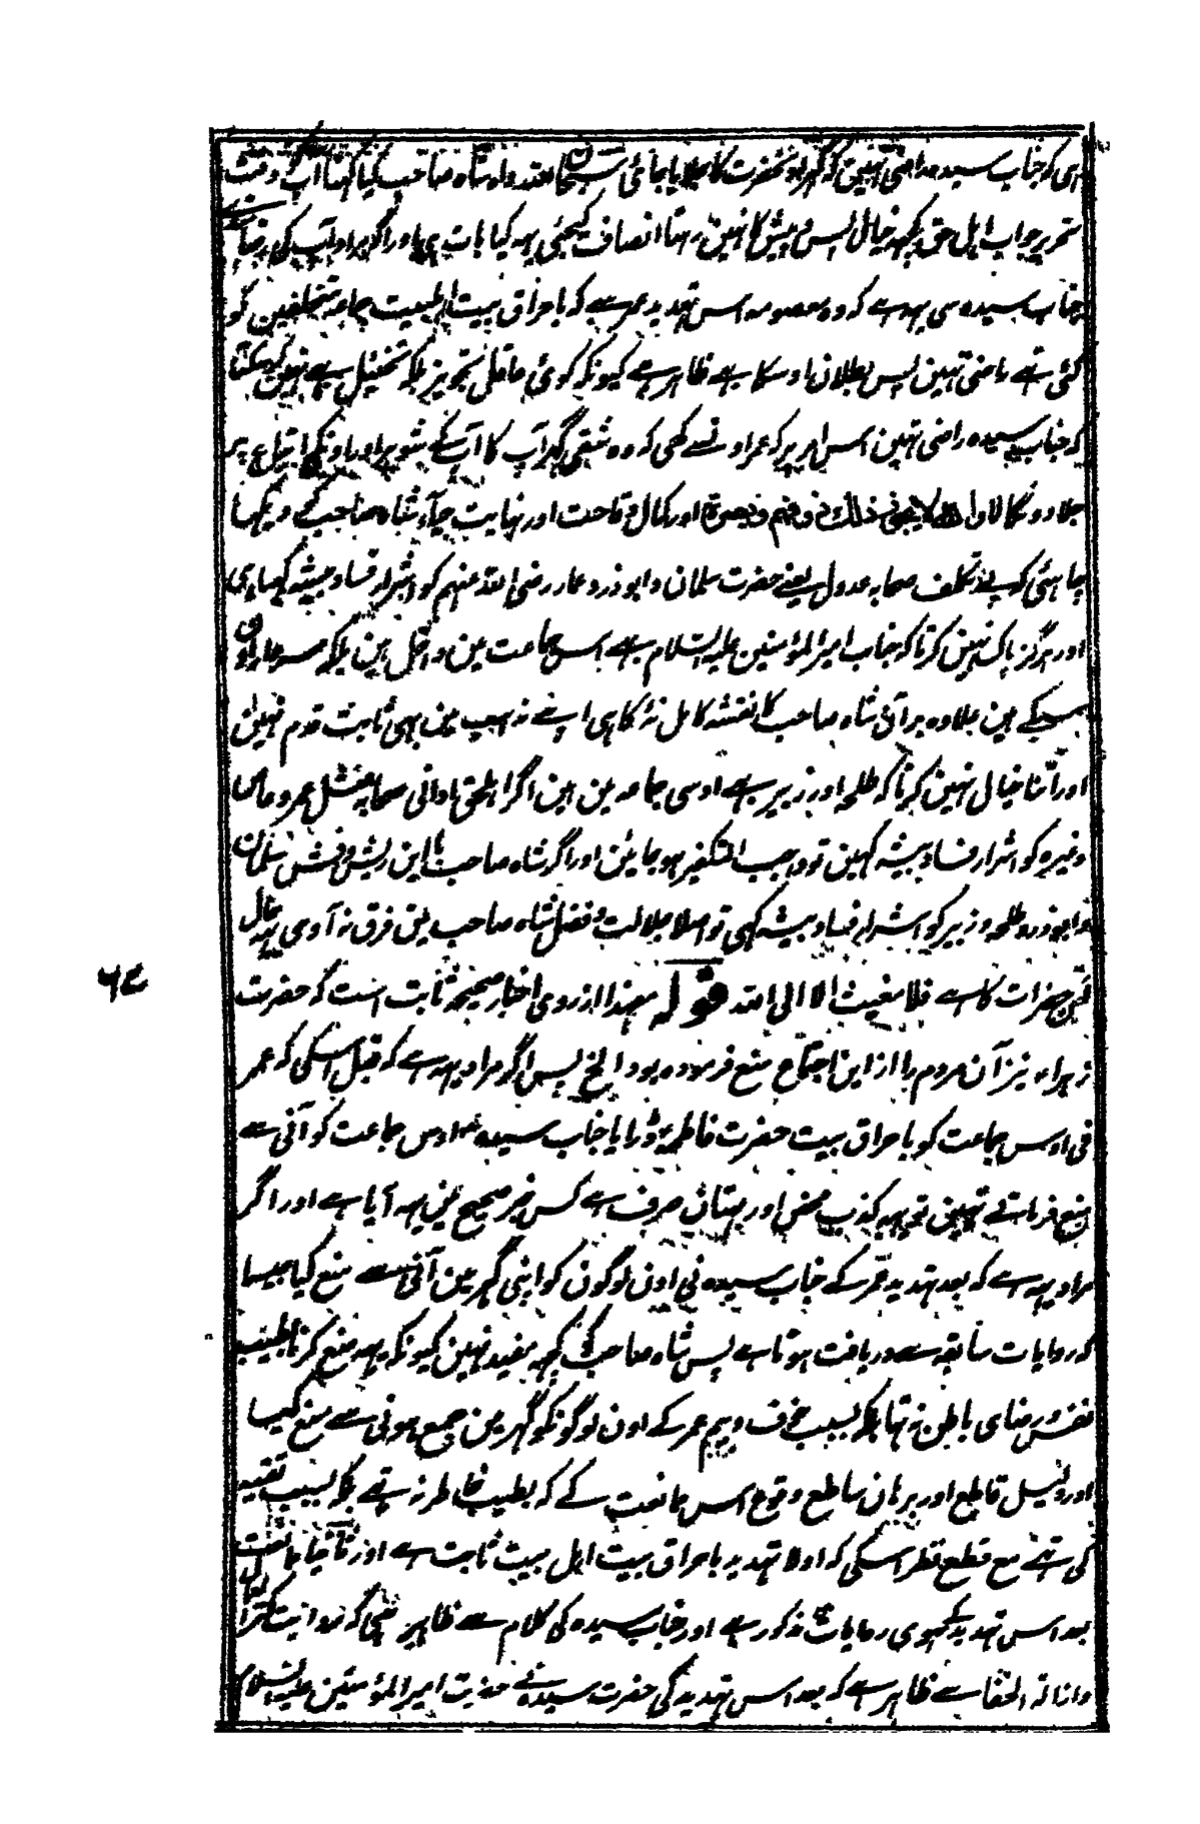 ہی کہ جناب سیدہ راضی نہیں کہ گہر اونحضرت کا جلایا جائی سبحان معتقد واہ شاہ صاحب کیا کہنا آپ وقت
تحریر جواب اہل حق کچہہ خیال پس و پیش کا نہیں رہتا انصاف کیجئی یہہ کیا بات ہی اور اگر مراد آپ کی رضا
جناب سیدہ سی یہہ ہے کہ وہ معصومہ اس تہدید عمر سے کہ باحراق بیت اہلبیت جماعہ متخلفین کو
کئی تہے راضی تہین پس بطلان اوسکا بہے ظاہر ہے کیونکہ کوئی عاقل تجویز بلکہ تخئیل بہے نہین کرسکتا
کہ جناب سیدہ راضی تہین اس امر پر کہ عمر اونسے کہی کہ وہ شقی گہر آپ کا آپ کے شوہر اور اونکے اتباع پر
جلادونگا لا واللہ لا یجوز ذلک ذو فہم و بصیرۃ اور کمال وقاحت اور نہایت حیاء شاہ صاحب کے دیکہنا
چاہئی کہ بے تکلف صحابہ عدول یعنے حضرت سلمان و ابوذر و عمار رضی اللہ عنہم کو اشرار فساد پیشہ کہتا ہی
اور ہرگز باک نہین کرتا کہ جناب امیر المؤمنین علیہ السلام بہے اس جماعت مین داخل ہین بلکہ سردار
سبکے ہین علاوہ برآن شاہ صاحب کا نقشہ کامل نرکاہی اپنے مذہب مین بہی ثابت قدم نہین
اور اتنا خیال نہین کرتا کہ طلحہ اور زبیر بہے اوسی جماعہ مین ہین اگر اہلحق ادانی صحابہ مثل عمرو عاص
وغیرہ کو اشرار فساد پیشہ کہین تو واجب التکفیر ہو جائین اور اگر شاہ صاحب باین ریش و فش سلمان
و ابوذر و طلحہ و زبیر کو اشرار فساد پیشہ کہی تو اصلا جلالت و فضل شاہ صاحب مین فرق نہ آوی یہہ حال
حضرات کا ہے فلا مغیث الا الی اللہ قولہ معہذا از روی اخبار صحیحہ ثابت است کہ حضرت
زہراء نیز آن مردم را ازین اجتماع منع فرمودہ بود الخ پس اگر مراد یہہ ہے کہ قبل اسکی کہ عمر
نی اوس جماعت کو باحراق بیت حضرت فاطمہ ڈرایا جناب سیدہ اوس جماعت کو آنی سے
منع فرماتے تہین تو یہہ کذب محض اور بہتان صرف ہے کس خبر صحیح مین یہہ آیا ہے اور اگر
مراد یہہ ہے کہ بعد تہدید عمر کے جناب سیدہ نی اون لوگون کو اپنی گہر مین آنی سے منع کیا جیسا
کہ روایات سابقہ سے دریافت ہوتا ہے پس شاہ صاحب کو کچہہ مفید نہین کیونکہ یہہ منع کرنا بطیب
نفس و رضای باطن نہ تہا بلکہ بسبب خوف و بیم عمر کے اون لوگونکو گہر مین جمع ہونی سے منع کیا
اور دلیل قاطع اور برہان ساطع وقوع اس ممانعت کے کہ بطیب خاطر نہ تہے بلکہ بسبب تقیہ
کی تہے مع قطع نظر اسکی کہ اولا تہدید باحراق بیت اہل بیت ثابت ہے اور ثانیا ممانعت
بعد اس تہدید کے ہوی روایات مین مذکور ہے اور جناب سیدہ کی کلام سے ظاہر
وازالۃ الخفا سے ظاہر ہے کہ بعد اس تہدید کی حضرت سیدہ نے حضرت امیر المؤمنین علیہ السلام